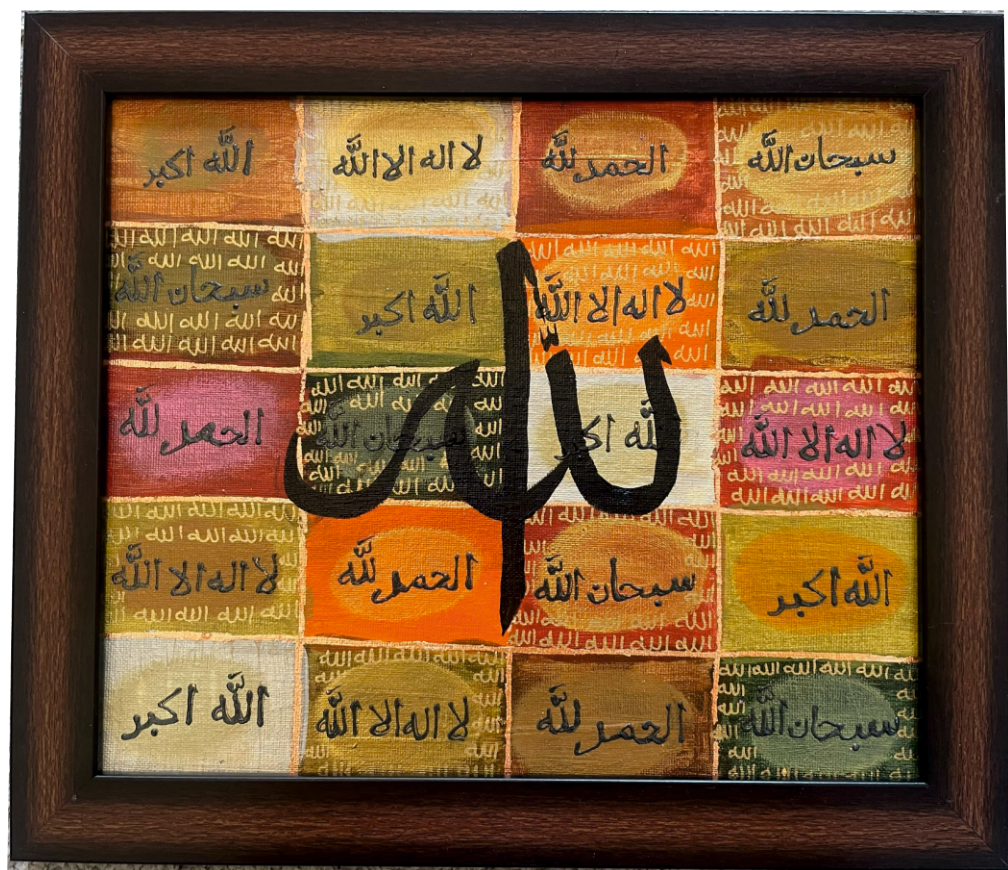 سبحان الله
الحمد لله
لا اله الا الله
الله اكبر
الحمد لله
لا اله الا الله
الله اكبر
سبحان الله
لا اله الا الله
الله اكبر
سبحان الله
الحمد لله
الله اكبر
سبحان الله
الحمد لله
لا اله الا الله
سبحان الله
الحمد لله
لا اله الا الله
الله اكبر
الله